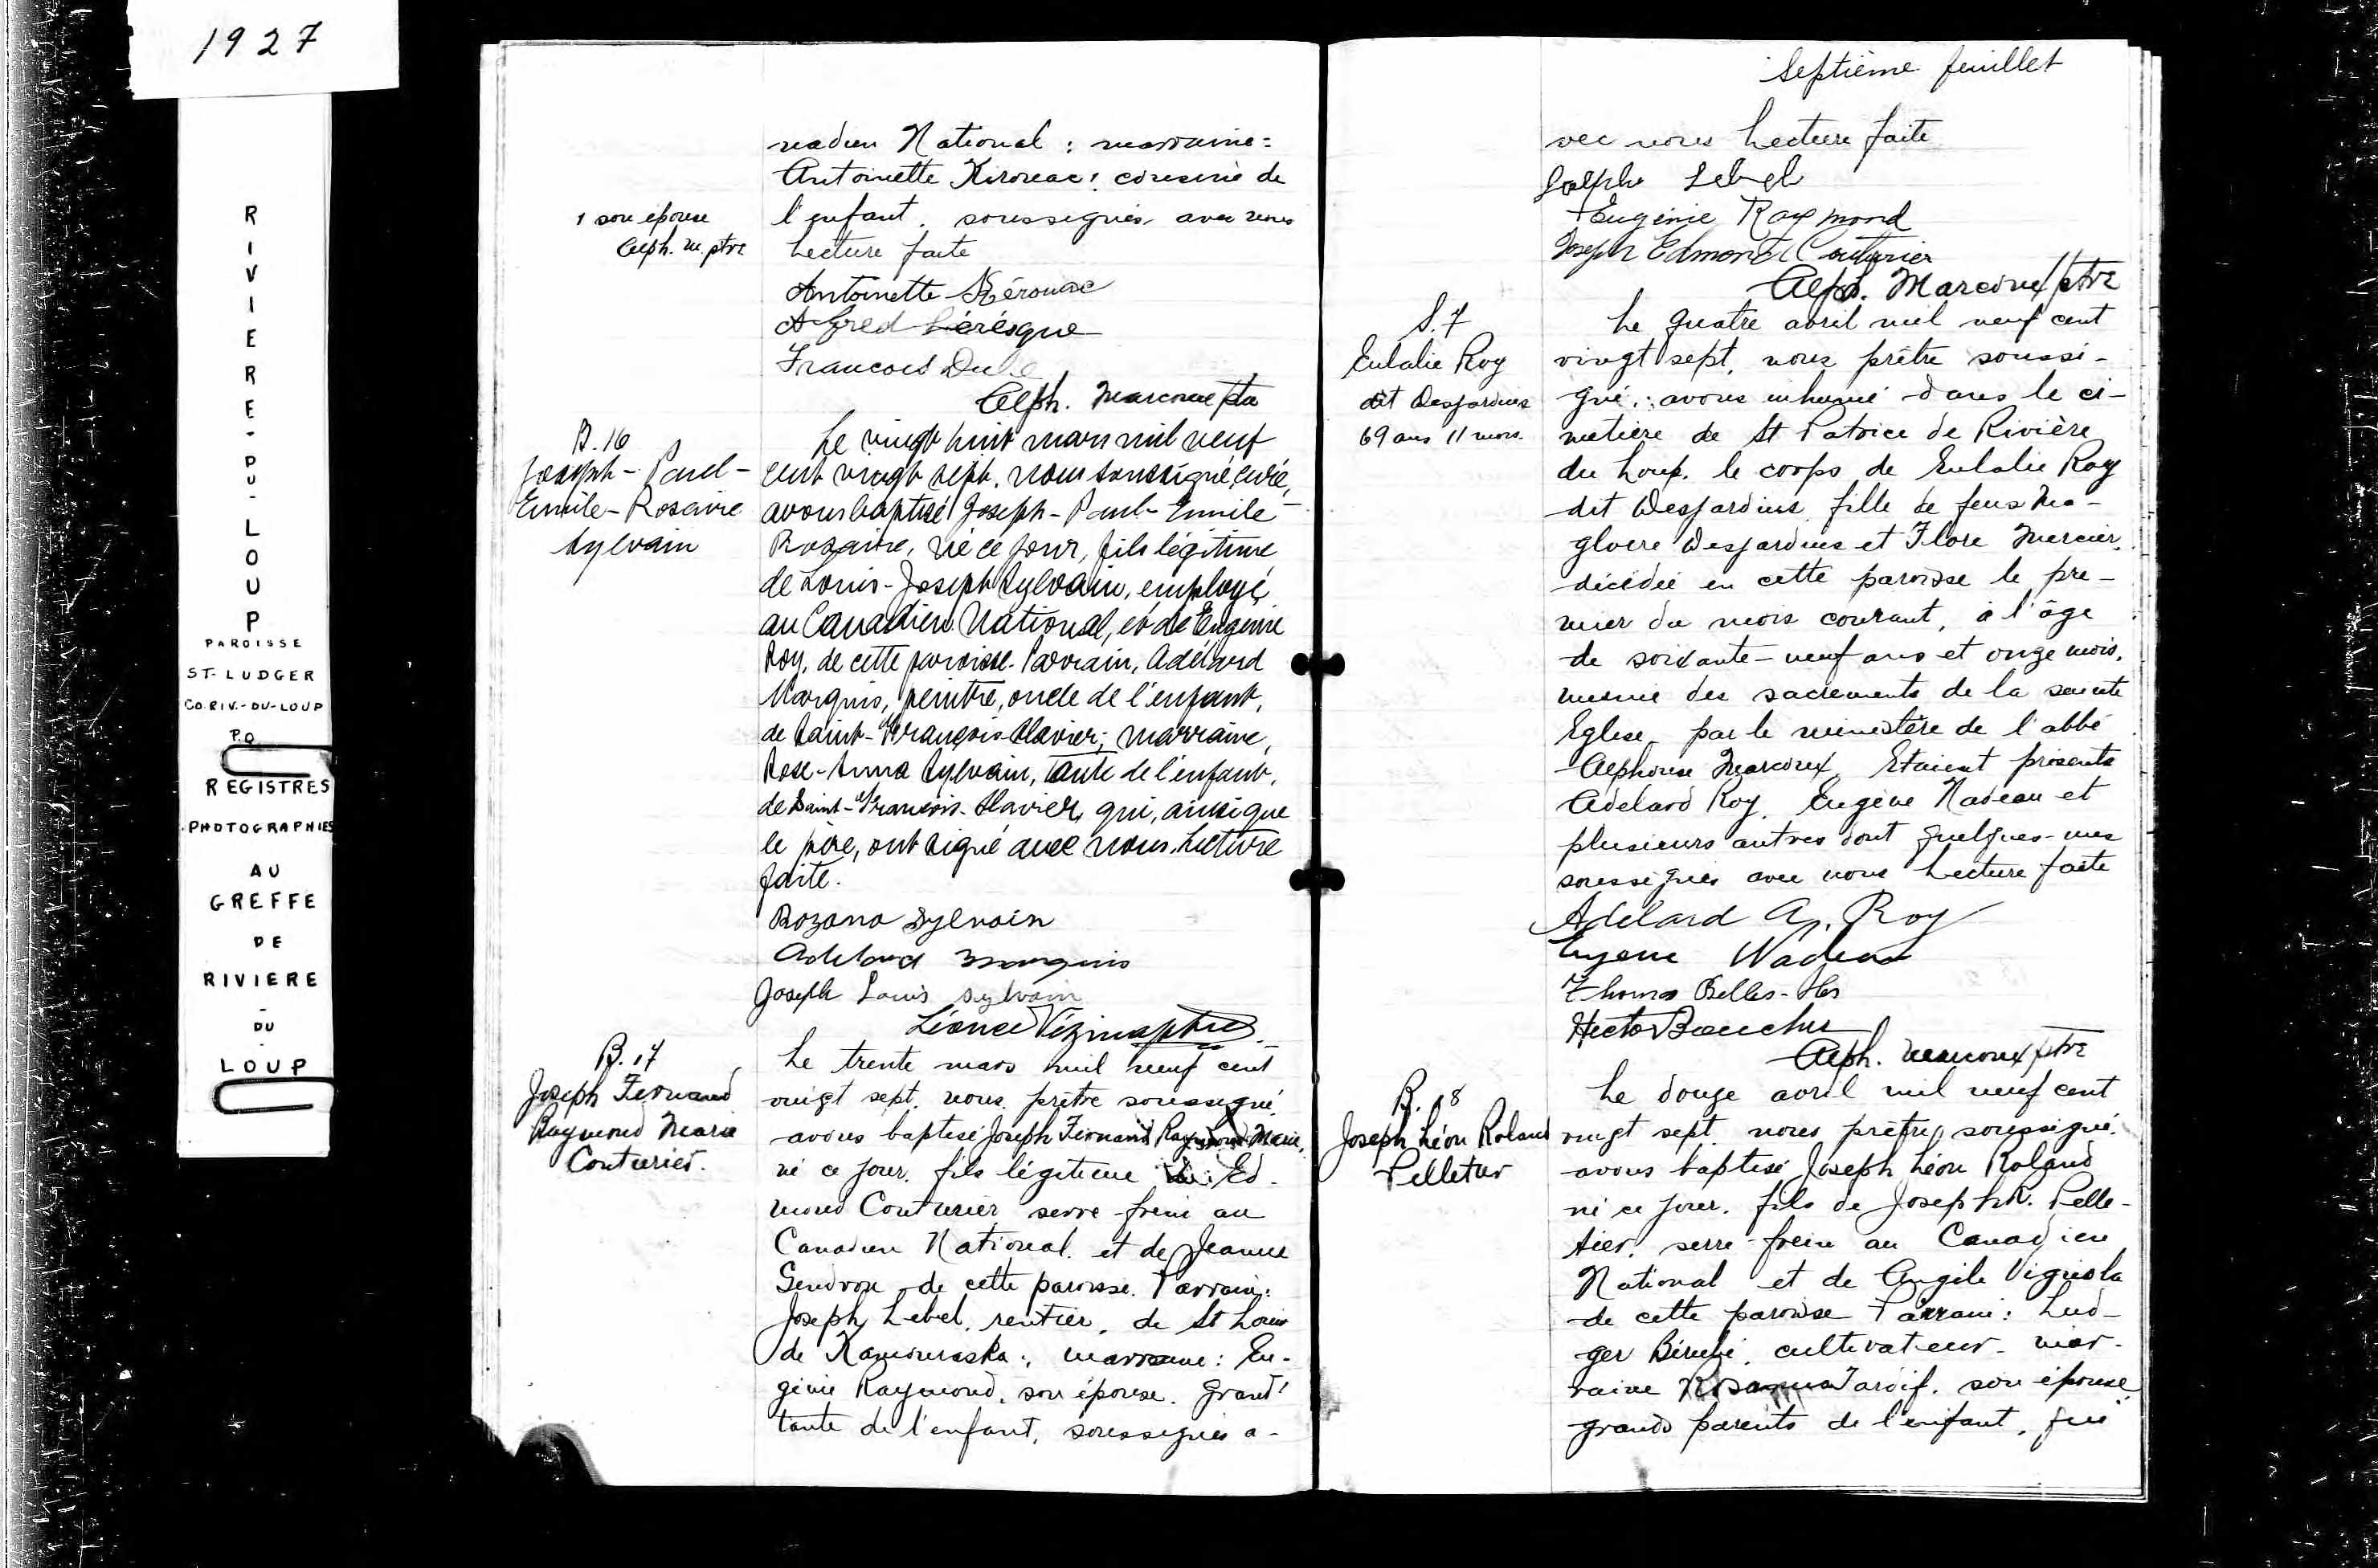 1927
RIVIERE-DU-LOUP
PAROISSE
ST-LUDGER
CO.RIV.-DU-LOUP
P.Q
REGISTRES
PHOTOGRAPHIES
AU
GREFFE
DE
RIVIERE
-
DU
-
LOUP
nadien National : marraine =
Antoinette Kirouac ¹. cousine de
1 son épouse
Alph. M. ptre
l'enfant. soussignés avec nous
Lecture faite
Antoinette Kérouac
Alfred Lévésque
Francois Dubé
Alph. Marcoux ptre
B. 16
Joseph - Paul -
Emile - Rosaire
Sylvain
Le vingt huit mars mil neuf
cent vingt sept. nous soussigné, curé,
avons baptisé Joseph - Paul - Emile -
Rosaire, né ce jour, fils légitime
de Louis - Joseph Sylvain, employé
au Canadien National, et de Eugénie
Roy, de cette paroisse. Parrain, Adélard
Marquis, peintre, oncle de l'enfant,
de Saint - François-Xavier; marraine,
Rose - Anna Sylvain, tante de l'enfant,
de Saint - François - Xavier, qui, ainsi que
le père, ont signé avec nous. Lecture
faite.
Rozana Sylvain
Adelard Marquis
Joseph Louis Sylvain
Léonce Vézina ptre
B. 17
Joseph Fernand
Raymond Marie
Couturier.
Le trente mars mil neuf cent
vingt sept. nous. prêtre soussigné.
avons baptisé Joseph Fernand Raymond Marie,
né ce jour. fils légitime de Ed -
mond Couturier serre - frein au
Canadien National. et de Jeanne
Gendron de cette paroisse. Parrain:
Joseph Lebel, rentier, de St Louis
de Kamouraska; marraine: Eu -
génie Raymond, son épouse. grand'
tante de l'enfant, soussignés a -
Septième feuillet
vec nous Lecture faite
Joseph Lebel
Eugénie Raymond
Joseph Edmond Couturier
Alph. Marcoux ptre
S. 7
Eulalie Roy
dit Desjardins
69 ans 11 mois.
Le quatre avril mil neuf cent
vingt sept, nous prêtre soussi -
gné, avons inhumé dans le ci -
metière de St Patrice de Rivière
du Loup. le corps de Eulalie Roy
dit Desjardins fille de feus Ma -
gloire Desjardins et Flore Mercier,
décédée en cette paroisse le pre -
mier du mois courant, à l'âge
de soixante - neuf ans et onze mois,
munie des sacrements de la sainte
Eglise par le ministère de l'abbé
Alphonse Marcoux Etaient présents
Adelard Roy, Eugène Nadeau et
plusieurs autres dont quelques - uns
soussignés avec nous Lecture faite
Adelard A. Roy
Eugene Nadeau
Thomas Belles - Iles
Hector Boucher
Alph. Marcoux ptre
B. 18
Joseph Léon Roland
Pelletier
Le douze avril mil neuf cent
vingt sept. nous prêtre soussigné.
avons baptisé Joseph Léon Roland
né ce jour. fils de Joseph R. Pelle -
tier. serre - frein au Canadien
National et de Angèle Vignola
de cette paroisse Parrain: Lud -
ger Bérubé, cultivateur - mar -
raine Rosanna Tardif. son épouse
grands parents de l'enfant, qui